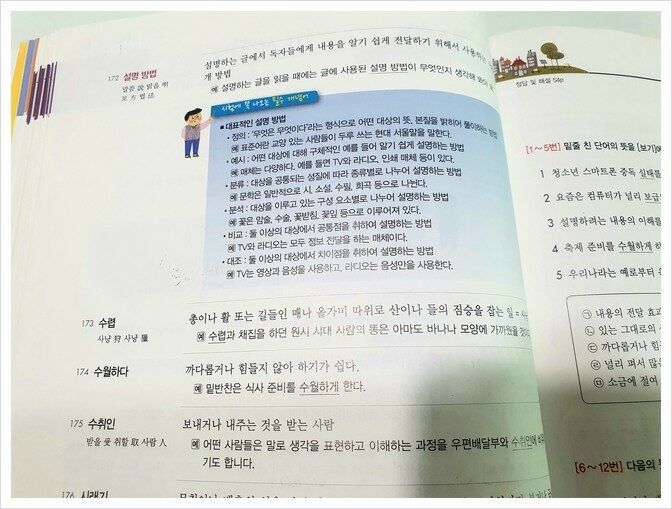 172 설명 방법
말씀 說 밝을 明
모 方 법 法
설명하는 글에서 독자들에게 내용을 알기 쉽게 전달하기 위해서 사용하는
개 방법
예 설명하는 글을 읽을 때에는 글에 사용된 설명 방법이 무엇인지 생각해
시험에 꼭 나오는 필수 개념어
■ 대표적인 설명 방법
• 정의 : '무엇은 무엇이다'라는 형식으로 어떤 대상의 뜻, 본질을 밝히어 풀이하는 방법
예 표준어란 교양 있는 사람들이 두루 쓰는 현대 서울말을 말한다.
• 예시 : 어떤 대상에 대해 구체적인 예를 들어 알기 쉽게 설명하는 방법
예 매체는 다양하다. 예를 들면 TV와 라디오, 인쇄 매체 등이 있다.
• 분류 : 대상을 공통되는 성질에 따라 종류별로 나누어 설명하는 방법
예 문학은 일반적으로 시, 소설, 수필, 희곡 등으로 나뉜다.
• 분석 : 대상을 이루고 있는 구성 요소별로 나누어 설명하는 방법
예 꽃은 암술, 수술, 꽃받침, 꽃잎 등으로 이루어져 있다.
• 비교 : 둘 이상의 대상에서 공통점을 취하여 설명하는 방법
예 TV와 라디오는 모두 정보 전달을 하는 매체이다.
• 대조 : 둘 이상의 대상에서 차이점을 취하여 설명하는 방법
예 TV는 영상과 음성을 사용하고, 라디오는 음성만을 사용한다.
173 수렵
사냥 狩 사냥 獵
총이나 활 또는 길들인 매나 올가미 따위로 산이나 들의 짐승을 잡는 일 =
예 수렵과 채집을 하던 원시 시대 사람의 똥은 아마도 바나나 모양에 가까웠을
174 수월하다
까다롭거나 힘들지 않아 하기가 쉽다.
예 밑반찬은 식사 준비를 수월하게 한다.
175 수취인
받을 受 취할 取 사람 人
보내거나 내주는 것을 받는 사람
예 어떤 사람들은 말로 생각을 표현하고 이해하는 과정을 우편배달부와 수취인에
기도 합니다.
176 시래기
정답 및 해설 54p
[1~5번] 밑줄 친 단어의 뜻을 [보기]에
1 청소년 스마트폰 중독 실태를
2 요즘은 컴퓨터가 널리 보급
3 설명하려는 내용의 이해를
4 축제 준비를 수월하게
5 우리나라는 예로부터
㉠ 내용의 전달 효과
㉡ 있는 그대로의
㉢ 까다롭거나 힘들
㉣ 널리 펴서 많은
㉤ 소금에 절여
[6~12번] 다음의